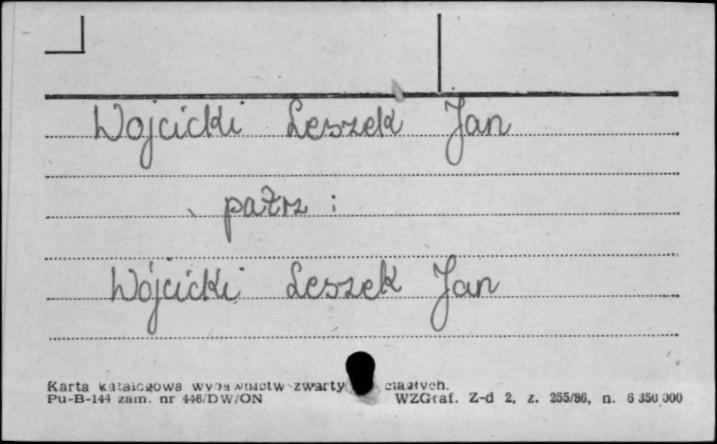 Wojcicki Leszek Jan
patrz :
Wójcicki Leszek Jan
Karta katalogowa wydawnictw zwarty ciągłych.
Pu-B-144 zam. nr 446/DW/ON WZGraf. Z-d 2, z. 255/86, n. 6 350 000